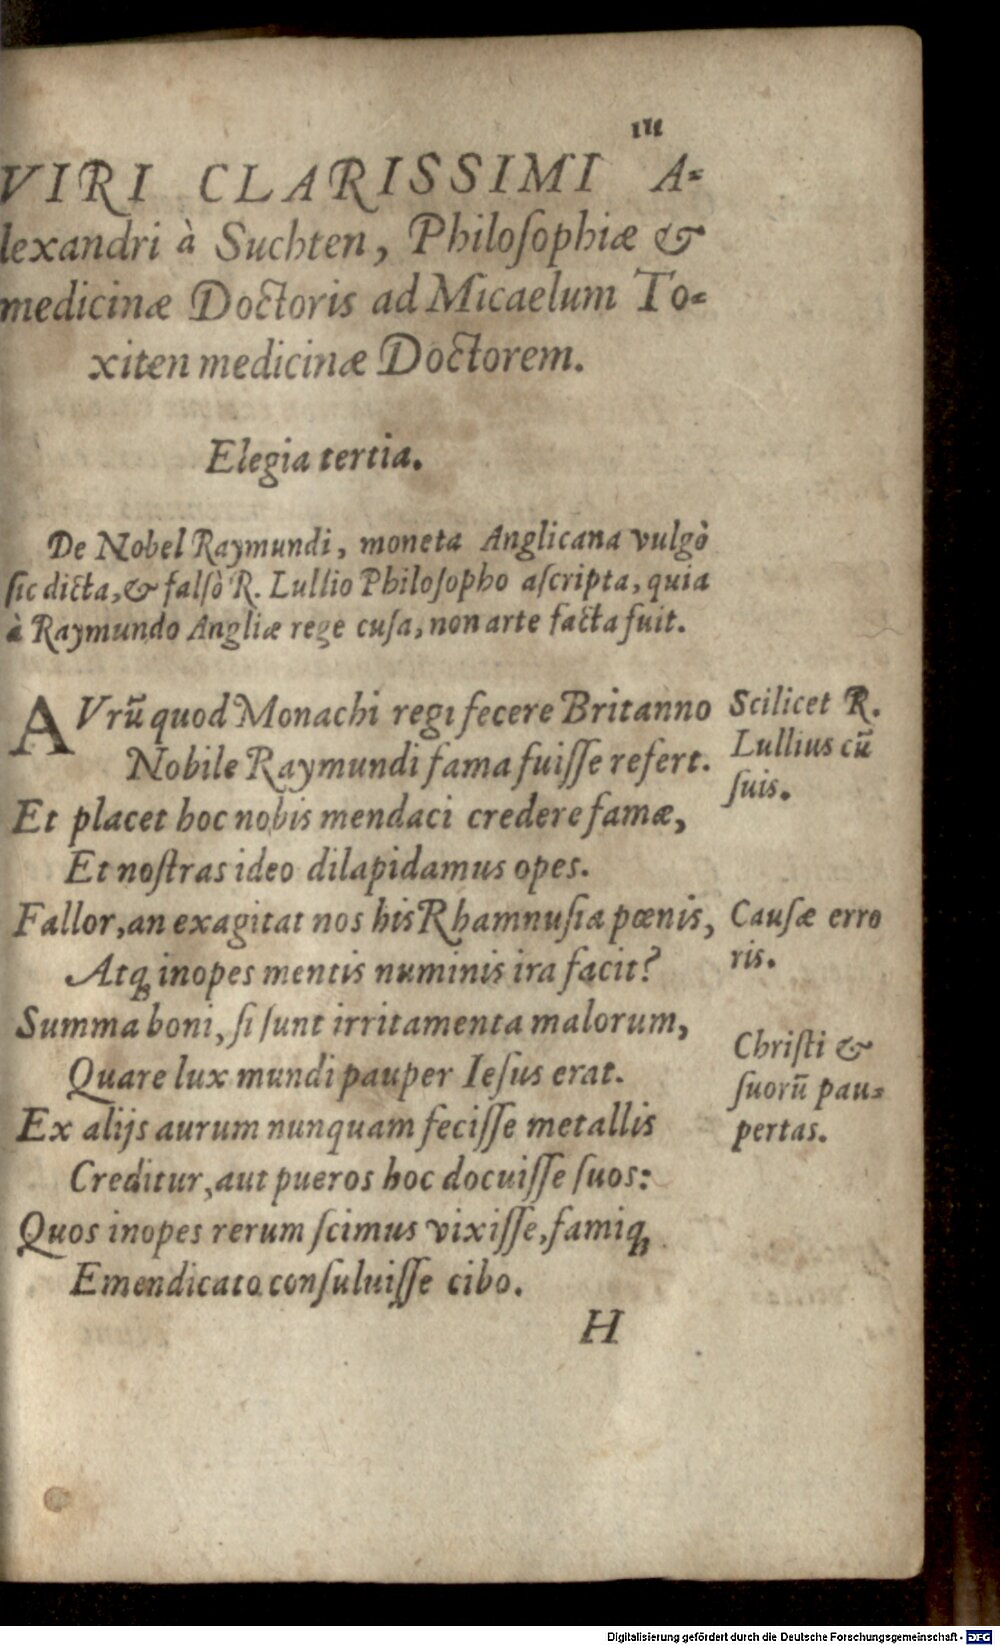 III
VIRI CLARISSIMI A-
lexandri à Suchten, Philosophiæ &
medicinæ Doctoris ad Micaelum To-
xiten medicinæ Doctorem.
Elegia tertia.
De Nobel Raymundi, moneta Anglicana vulgò
sic dicta, & falsò R. Lullio Philosopho ascripta, quia
à Raymundo Angliæ rege cusa, non arte facta fuit.
AVrũ quod Monachi regi fecere Britanno
Nobile Raymundi fama fuisse refert.
Scilicet R.
Lullius cũ
suis.
Et placet hoc nobis mendaci credere famæ,
Et nostras ideo dilapidamus opes.
Fallor, an exagitat nos his Rhamnusia pœnis,
Atq; inopes mentis numinis ira facit?
Causæ erro
ris.
Summa boni, si sunt irritamenta malorum,
Quare lux mundi pauper Iesus erat.
Ex alijs aurum nunquam fecisse metallis
Christi &
suorũ pau-
pertas.
Creditur, aut pueros hoc docuisse suos:
Quos inopes rerum scimus vixisse, famiq;
Emendicato consuluisse cibo.
H
Digitalisierung gefördert durch die Deutsche Forschungsgemeinschaft - DFG